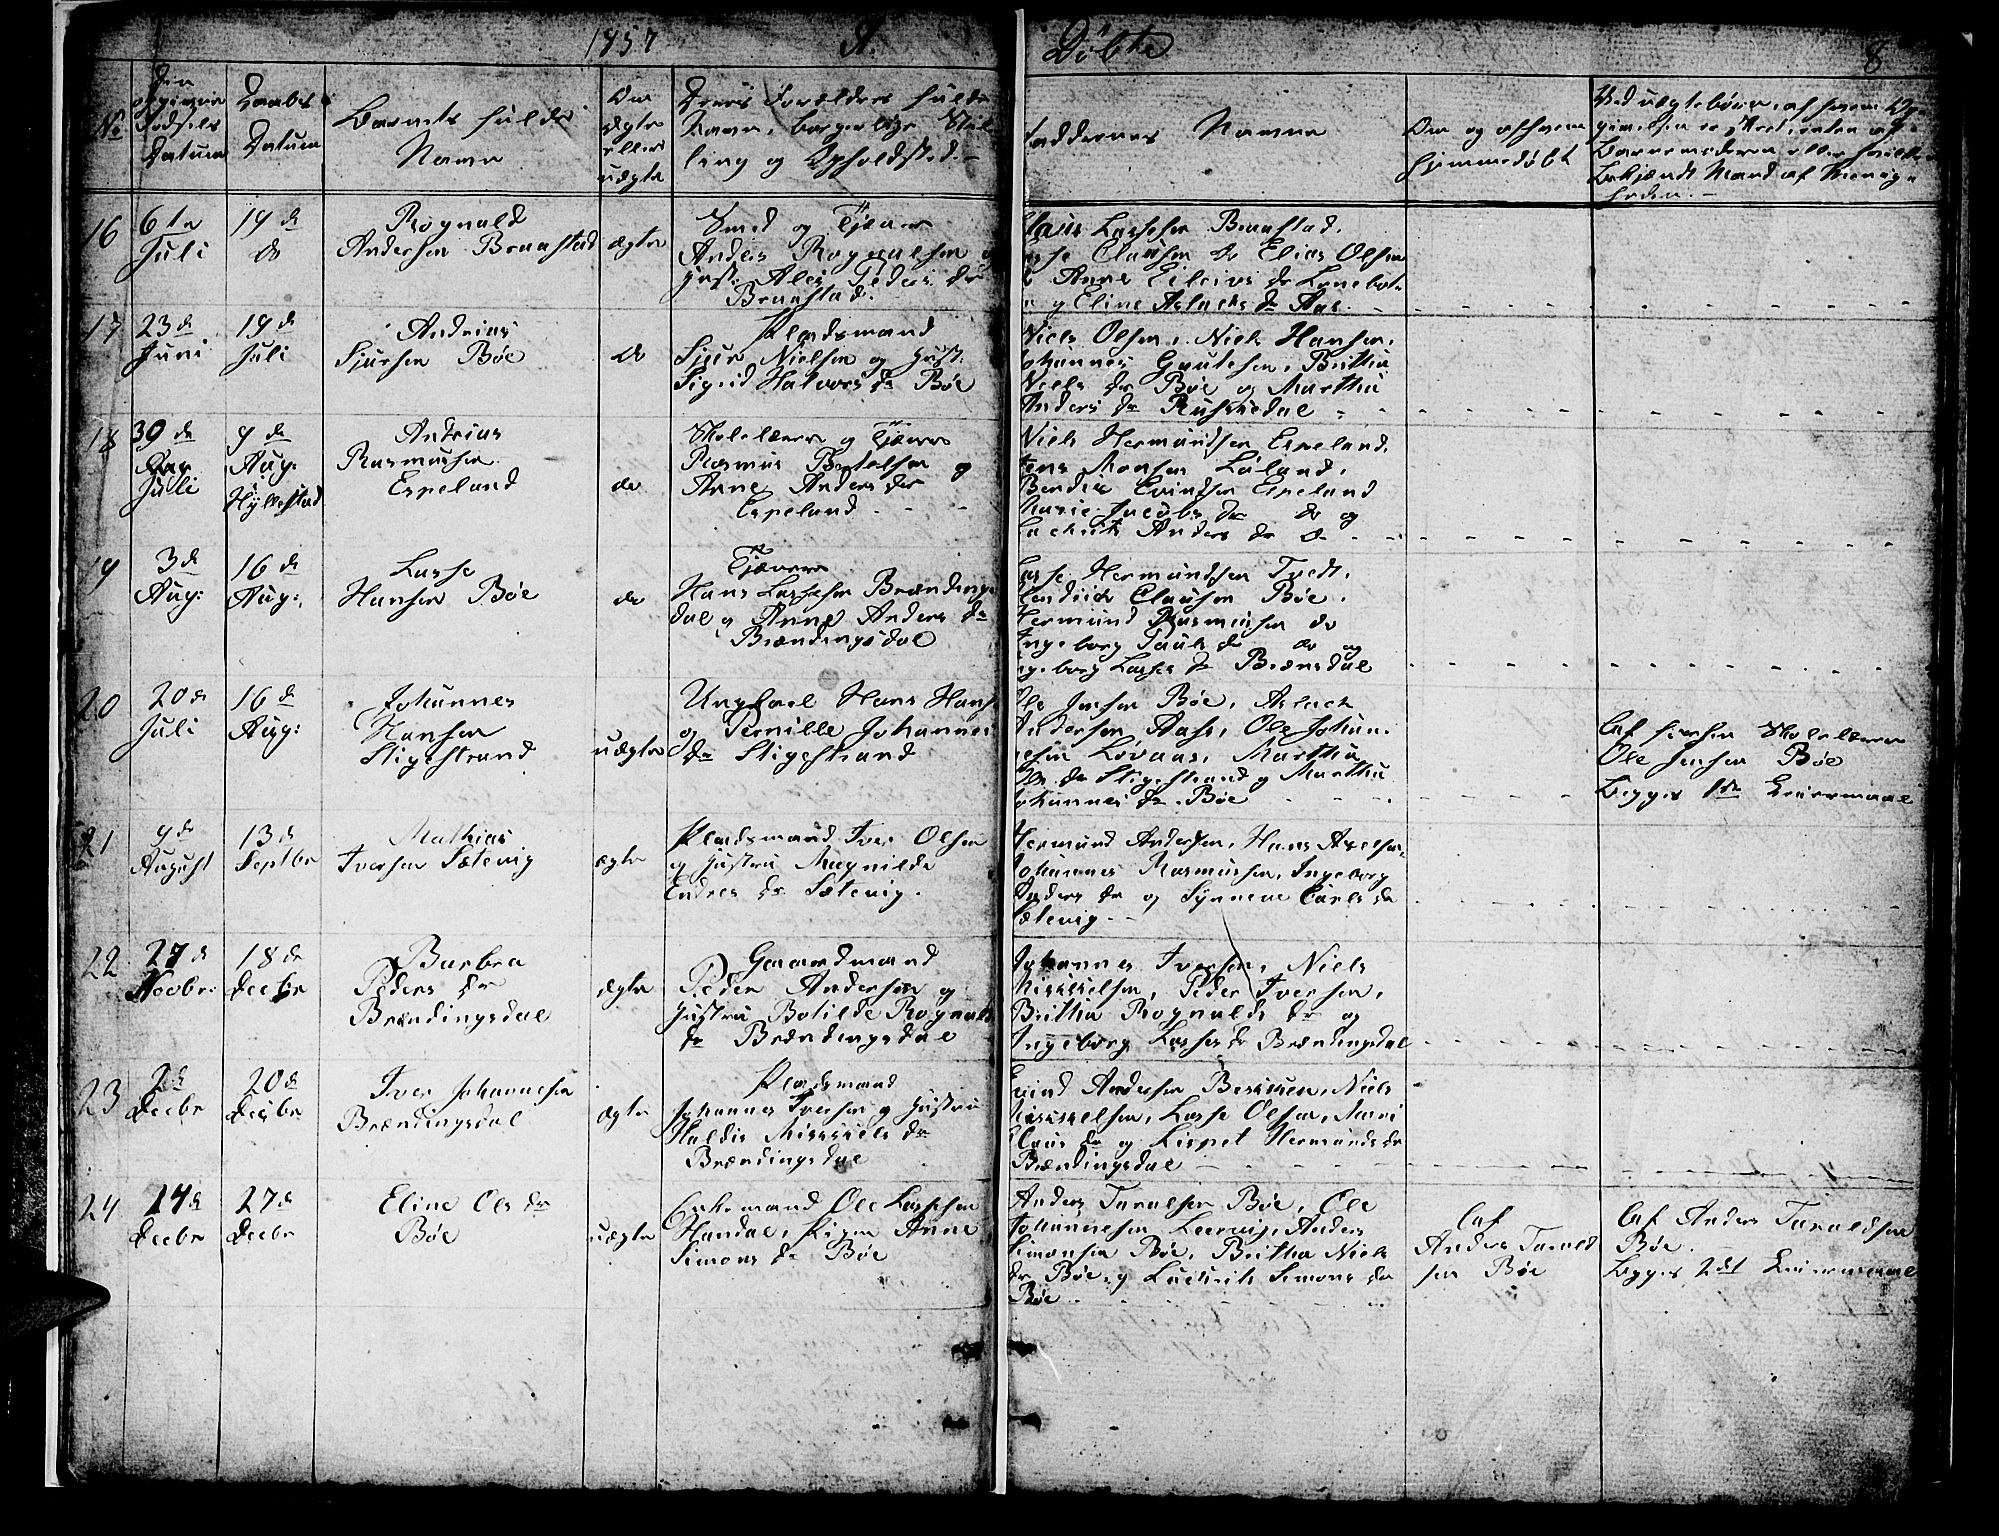 1857 A. Døbte 8
No
Den
opgivne
Fødsels
Datum
Daabs
Datum
Barnets fulde
Navn
Om
ægte
eller
uægte
Dens Forældres fulde
Navn, borgerlige Stil-
ling og Opholdsted.
Faddernes Navne
Om og af hvem
hjemmedøbt
Ved uægte børn, af hvem Op-
givelsen er skeet, enten af
Barnemoderen eller hvilken
bekjendt Mand af Menig-
heden.
16
6te
Juli
19 d
do
Rognald
Andersen Braastad
ægte
Smed og Tjener
Anders Rognalsen og
Hust. Ales Peders dr
Braastad.
Claus Lassesen Braastad.
Lasse Clausen do Elias Olsen
do Anne Eilerts dr
og Eline Aslaks dr Aas.
17
23 d
Juni
19 d
Juli
Andrias
Sjursen Bøe
do
Pladsmand
Sjur Nielsen og Hust.
Sigrid Halvors dr Bøe
Niels Olsen, Niels Hansen,
Johannes Gautesen, Britha
Niels dr Bøe og Martha
Anders dr Russedal
18
30 d
Juli
9 d
Aug:
Hyllestad
Andrias
Rasmussen
Espeland
do
Skolelærer og Tjener
Rasmus Bertelsen og
Anne Anders dr
Espeland
Niels Hermundsen Espeland,
Jens Monsen Løland,
Bendix Eivindsen Espeland
Marie Jacobs dr do og
Anders dr do
19
3 d
Aug:
16 d
Aug:
Lasse
Hansen Bøe
do
Tjener
Hans Lassesen Brændings-
dal og Anne Anders dr
Brændingsdal
Lasse Hermundsen Tvedt,
Hendrick Clausen Bøe.
Hermund Rasmussen do
Ingeborg Pauls dr do og
Ingeborg Lasses dr Brænsdal
20
20 d
Juli
16 d
Aug:
Johannes
Hansen
Stigestrand
uægte
Ungkarl Hans Hans.
og Pernille Johannes
dr Stigestrand
Ole Jensen Bøe, Aslack
Andersen Aase, Ole Johan-
nesen Lovaas, Martha
Ols dr Stigestrand og Martha
Johannes dr. Bøe
af Skolelærer
Ole Jensen Bøe
Begges 1ste Leiermaal
21
9 d
August
13 d
Septbr
Mathias
Iversen Sætevig
ægte
Pladsmand Iver Olsen
og Hustru Magnilde
Endres dr Sætevig.
Hermund Andersen, Hans Axelsen,
Johannes Rasmussen, Ingeborg
Anders dr og Synneve Carls dr
Sætevig.
22
27 d
Novbr.
18 d
Decbr
Barbra
Peders dr
Brændingsdal
ægte
Gaardmand
Peder Andersen og
Hustru Botilde Rognals
dr Brændingsdal
Johannes Iversen, Niels
Mikkelsen, Peder Iversen,
Britha Rognalds dr og
Ingeborg Lasses dr Brændingsdal
23
2 d
Decbr
20 d
Decbr
Iver Johannesen
Brændingsdal
ægte
Pladsmand
Johannes Iversen og Hustru
Haldis Mikkels dr
Brændingsdal
Eivind Andersen Bekken, Niels
Mikkelsen, Lasse Olsen, Mari
Claus dr og Lispet Hermunds dr
Brændingsdal
24
14 d
Decbr
27 d
Decbr
Eline Ols dr
Bøe
uægte
Enkemand Ole Lassesen
Handal, Pigen Anne
Simons dr Bøe
Anders Taraldsen Bøe, Ole
Johannesen Leervig, Anders
Simonsen Bøe, Britha Niels
dr Bøe og Simons dr
Bøe
af
Anders Tarald-
sen Bøe
af Anders Taraldsen
Bøe.
Begges 2det Leiermaal